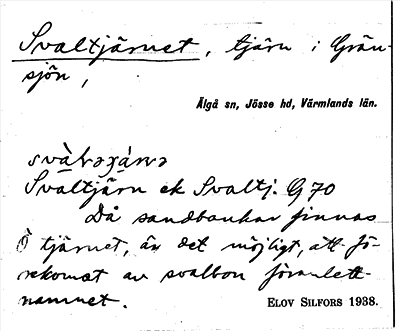 Svaltjärnet, tjärn i Grän-
sjön,
Älgå sn, Jösse hd, Värmlands län.
Svaltjärn ek Svaltj. G 70
Då sandbankar finnas
i tjärnet, är det möjligt, att fö-
rekomst av svalbon föranlett
namnet.
ELOV SILFORS 1938.